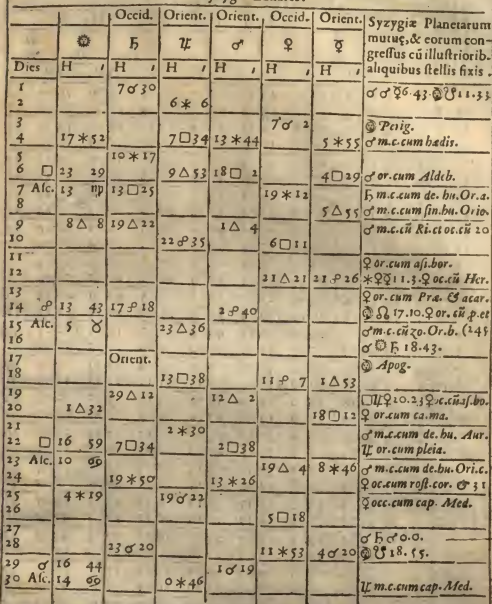 Occid. Orient. Orient. Occid. Orient. Syzygiæ Planetarum
☉ ♄ ♃ ♂ ♀ ☿ mutuę, & eorum con-
gressus cū illustriorib.
Dies H ′ H ′ H ′ H ′ H ′ H ′ aliquibus stellis fixis.
1 7☌30 ☌♂☿6.43.☋11.33
2 6✶ 6
3 7☌ 2 Perig.
4 17✶52 7□34 13✶44 5✶55 ♂m.c.cum hædis.
5 10✶17
6 □ 23 29 9△53 18□ 2 4□29 ♂or.cum Aldeb.
7 Asc. 13 ♍ 13□25 19✶12 ♄ m.c.cum de. hu. Or.a.
8 5△55 ♂m.c.cum sin.hu. Orio.
9 8△ 8 19△22 1△ 4 ♂m.c.cū Ri.et oc.cū 20
10 22☍35 6□11
11 ♀or.cum asi.bor.
12 21△21 21☍26 ✶♀☿11.3.♀oc.cū Her.
13 ♀or.cum Præ. & acar.
14 ☍ 13 43 17☍18 2☍40 ☊17.10.♀or.cū p.et
15 Asc. 5 ♉ 23△36 ♂m.c.cū zo.Or.b. (245
16 ☌☉♄18.43.
17 Orient. Apog.
18 13□38 11☍ 7 1△53
19 29△12 12△ 2 □♃♀20.23♀oc.cū as.bo.
20 1△32 18□12 ♀or.cum ca.ma.
21 2✶30 ♂m.c.cum de. hu. Aur.
22 □ 16 59 7□34 2□38 ♃ or.cum pleia.
23 Asc. 10 ♋ 19△ 4 8✶46 ♂m.c.cum de.hu. Ori.c.
24 19✶50 13✶26 ♀oc.cum rost.cor. & 31
25 4✶19 19☌22 ☿occ.cum cap. Med.
26 5□18
27 ☌♄♂0.0.
28 23☌20 11✶53 4☌20 ☋18.55.
29 ☌ 16 44 1☌19
30 Asc. 14 ♋ 0✶46 ♃ m.c.cum cap. Med.